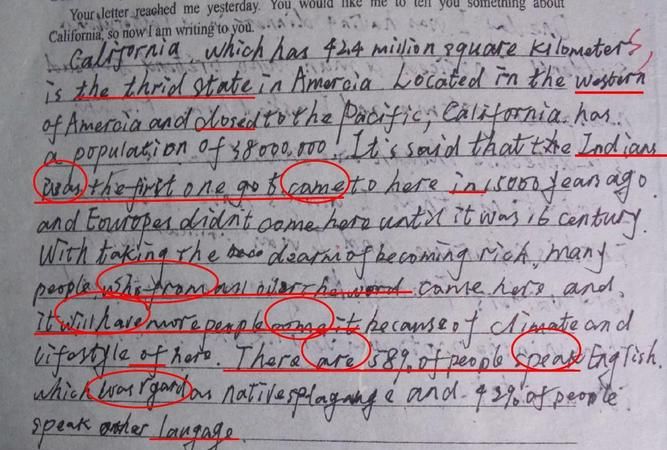 Your letter reached me yesterday. You would like me to tell you something about
California, so now I am writing to you.
California, which has 424 million square kilometers,
is the thrid state in Amercia. Located in the western
of Amercia and closed to the Pacific, California has
a population of 38000,000. It's said that the Indians
was the first one go to came to here in 15000 years ago
and Europes didn't come here until it was 16 century.
With taking the dearm of becoming rich, many
people, who from all over the word came here, and,
it will have more people come it because of climate and
lifestyle of here. There are 58% of people speak English.
which was rgard as native splagange and 42% of people
speak other langage.